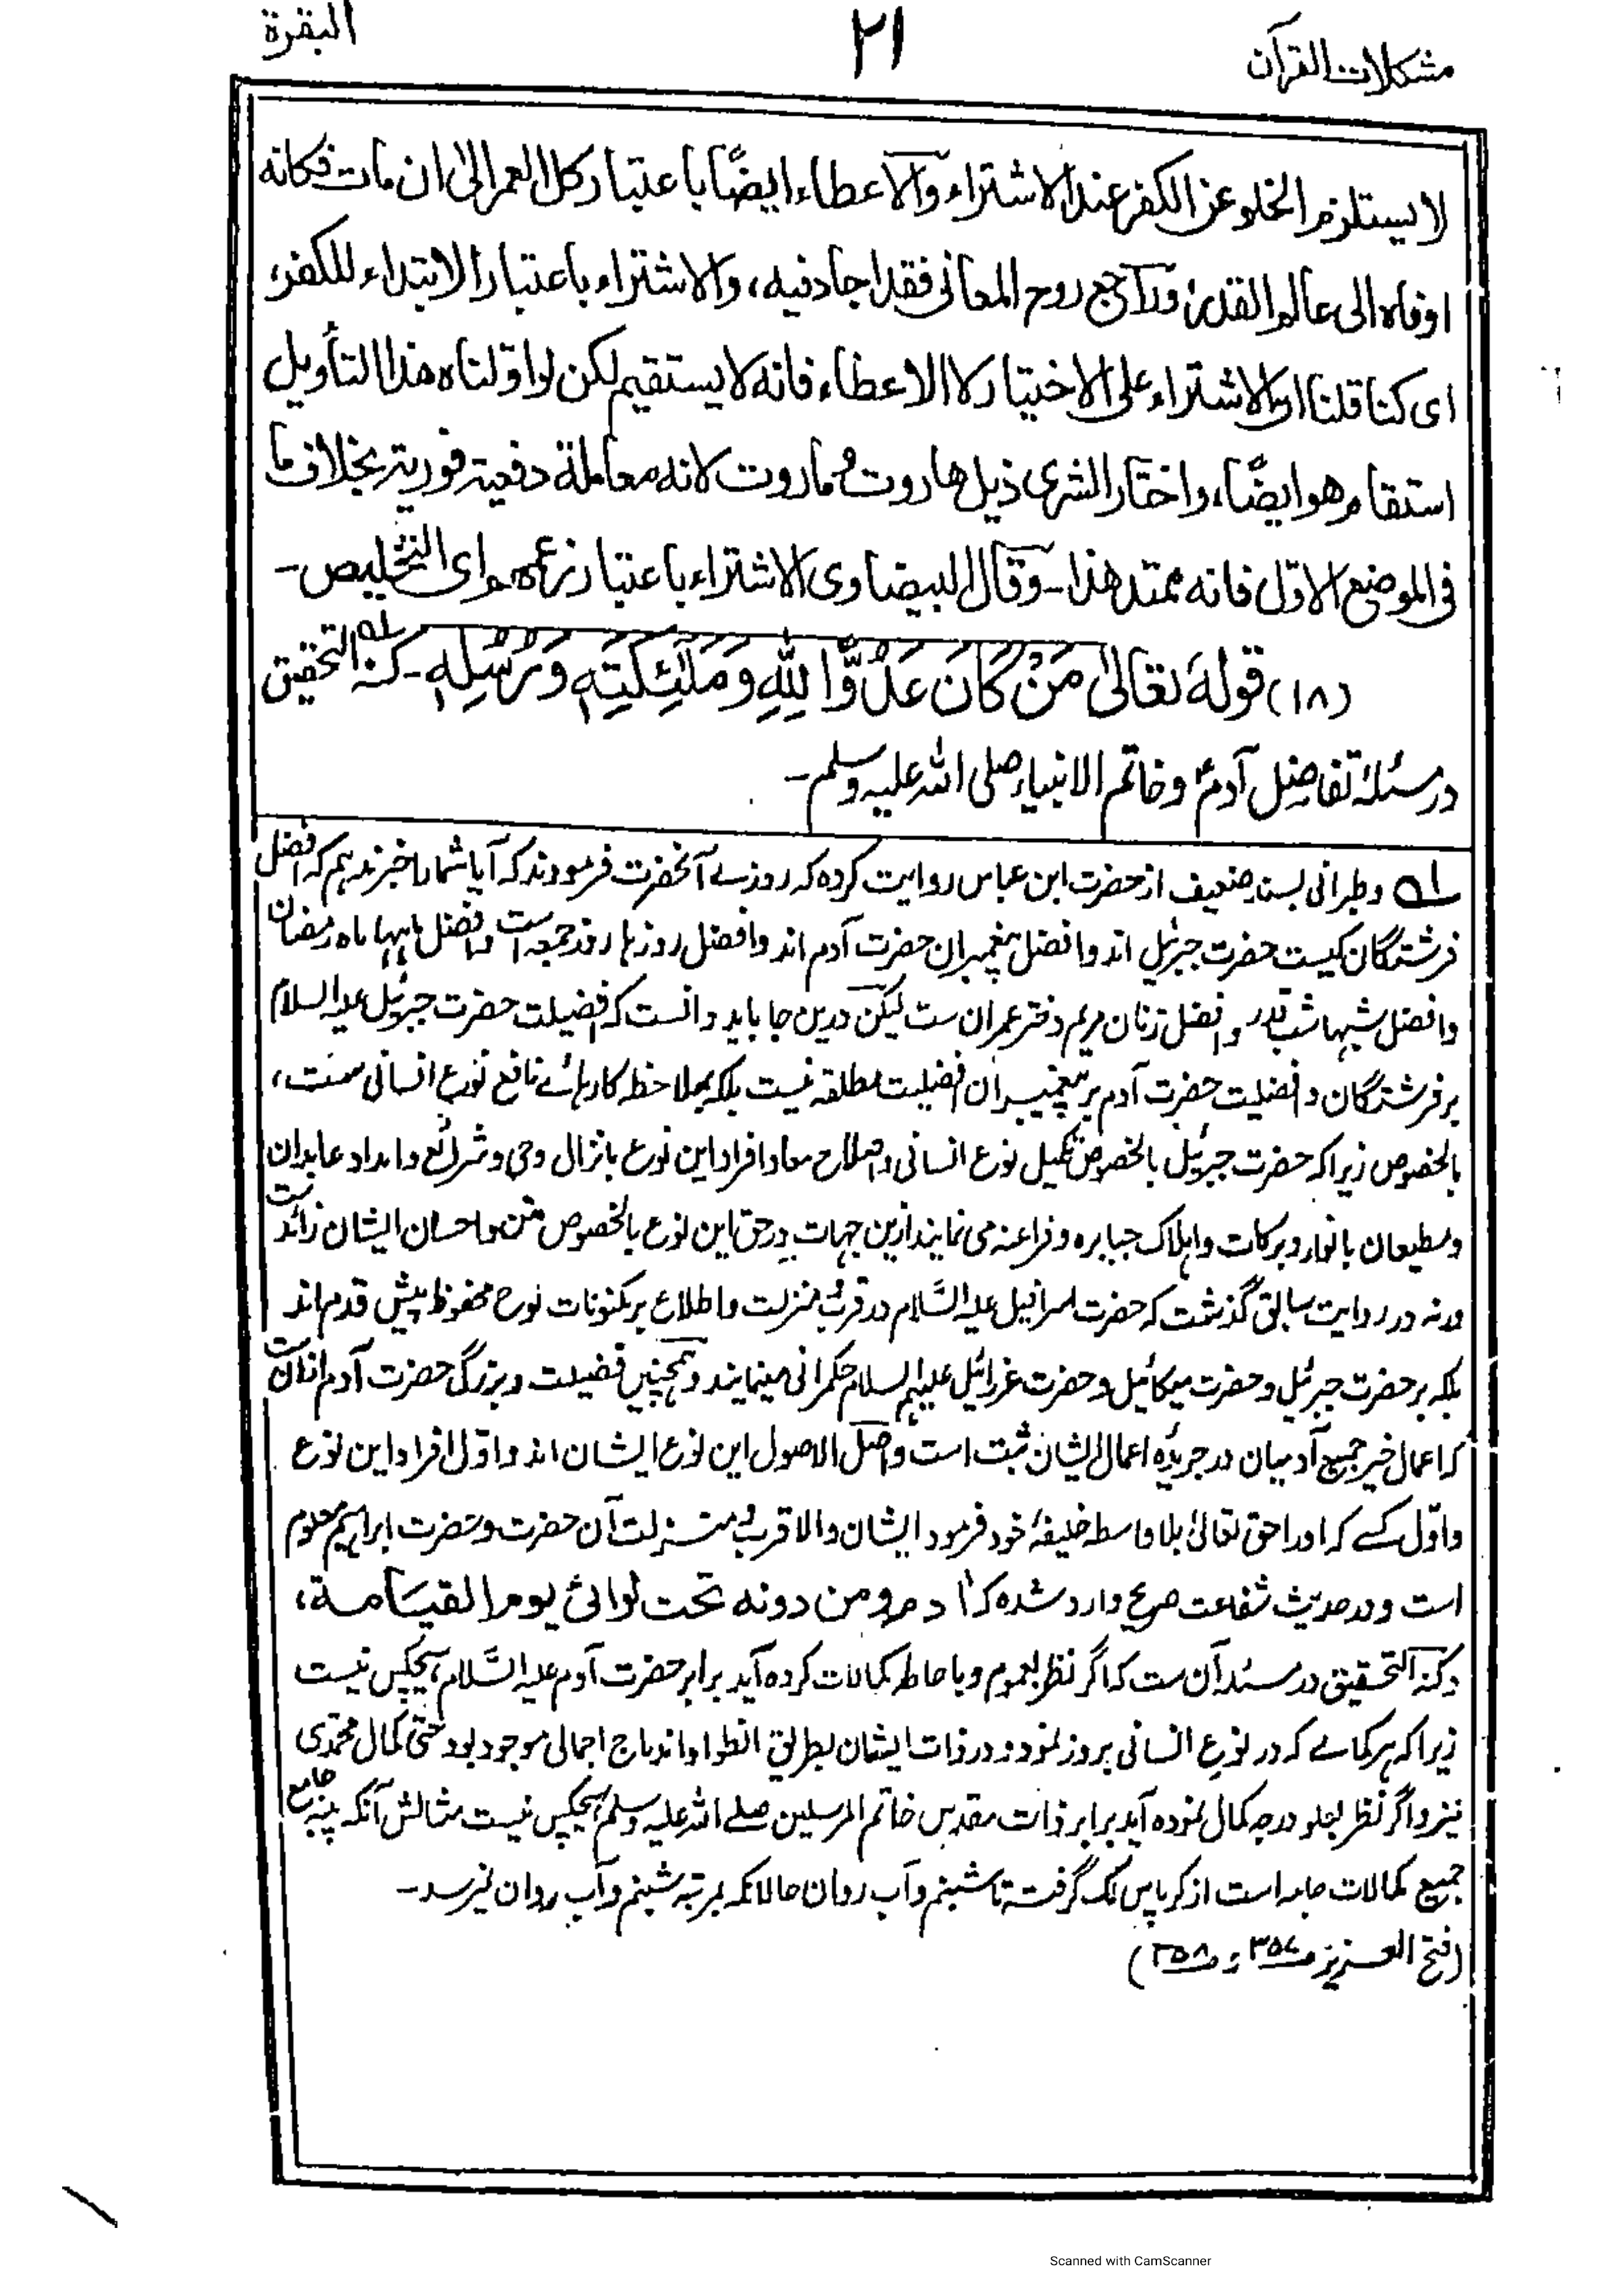 مشكلات القرآن
٢١
البقرة
لا يستلزم الخلو عن الكفر عند الاشتراء والاعطاء ايضًا باعتبار كل العمر الى ان مات فكانه
اوفاه الى عالم القدس وراجع روح المعانى فقد اجاد فيه، والاشتراء باعتبار الابتداء للكفر،
اى كنا قلنا ان الاشتراء على الاختيار لا الاعطاء فانه لا يستقيم لكن لو اوّلناه هذا التأويل
استقام هو ايضًا، واختار الشرى ذيل هاروت وماروت لانه معاملة دفعية فورية بخلاف ما
فى الموضع الاوّل فانه ممتد هذا ـ وقال البيضاوى الاشتراء باعتبار زعمهم اى التخليص ـ
(١٨) قوله تعالىٰ مَنْ كَانَ عَدُوًّا لِلّٰهِ وَمَلٰٓئِكَتِهٖ وَرُسُلِهٖ ـ کنہ التحقیق
در مسئلۂ تفاضل آدمؑ و خاتم الانبیاء صلی اللہ علیہ وسلم ـ
لہ و طبرانی بسند ضعیف از حضرت ابن عباس روایت کردہ کہ روزے آنحضرت فرمودند کہ آیا شما را خبر ندہم کہ افضل
فرشتگان کیست حضرت جبرئیل اند و افضل پیغمبران حضرت آدم اند و افضل روزہا روز جمعہ است و افضل ماہہا ماہ رمضان
و افضل شبہا شب قدر و افضل زنان مریم دختر عمران ست لیکن درین جا باید دانست کہ افضیلت حضرت جبرئیل علیہ السلام
بر فرشتگان و افضلیت حضرت آدم بر پیغمبران افضلیت مطلقہ نیست بلکہ بملاحظہ کارہائے نافع نوع انسانی ست،
بالخصوص زیرا کہ حضرت جبرئیل بالخصوص تکمیل نوع انسانی و اصلاح معاد افراد این نوع بانزال وحی و شرائع و امداد عابدان
و مطیعان بانوار و برکات و اہلاک جبابرہ و فراعنہ می نمایند ازین جہات در حق این نوع بالخصوص منن و احسان ایشان زائد ست
ورنہ در روایت سابق گذشت کہ حضرت اسرافیل علیہ السّلام در قرب منزلت و اطلاع بر مکنونات لوح محفوظ پیش قدم اند
بلکہ بر حضرت جبرئیل و حضرت میکائیل و حضرت عزرائیل علیہم السلام حکمرانی مینمایند و ہمچنین فضیلت و بزرگی حضرت آدم ازان ست
کہ اعمال خیر جمیع آدمیان در جریدہ اعمال ایشان ثبت است و اصل الاصول این نوع ایشان اند و اوّل افراد این نوع
و اوّل کسے کہ او را حق تعالیٰ بلا واسطہ خلیفۂ خود فرمود ایشان والا قرب و منزلت آن حضرت و حضرت ابراہیم معلوم
است و در حدیث شفاعت صریح وارد شدہ کہ اٰدم و من دونہ تحت لوائی یوم القیامة،
و کنہ التحقیق در مسئلہ آن ست کہ اگر نظر بعموم و باحاطہ کمالات کردہ آید برابر حضرت آدم علیہ السّلام ہیچکس نیست
زیرا کہ ہر کمالے کہ در نوع انسانی بروز نمود در ذات ایشان بطریق انطوا و اندماج اجمالی موجود بود حتی کمال محمّدی
نیز و اگر نظر بعلو درجہ کمال نمودہ آید برابر ذات مقدس خاتم المرسلین صلے اللہ علیہ وسلم ہیچکس نیست مثالش آنکہ پنبہ جامع
جمیع کمالات جامہ است از کرپاس لک گرفتہ تا شبنم و آب روان حالانکہ بمرتبہ شبنم و آب روان نمیرسد ـ
(فتح العزیز ص٣٥٧ و ص٣٥٨)
Scanned with CamScanner